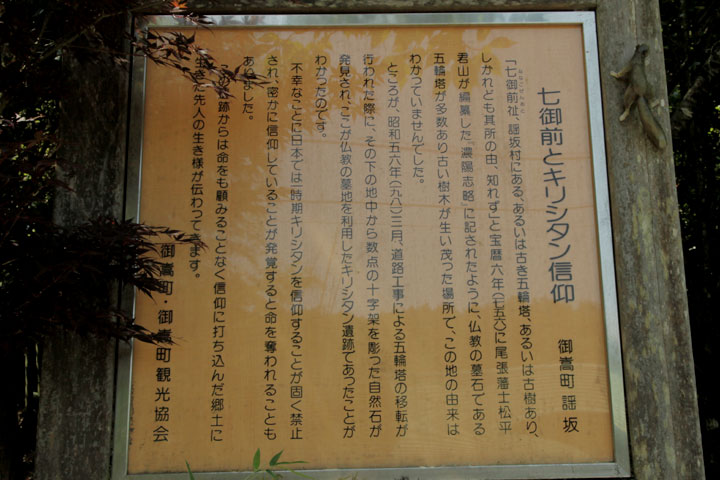 七御前とキリシタン信仰
御嵩町謡坂
「七御前祉、謡坂村にある、あるいは古き五輪塔、あるいは古樹あり、
しかれども其所の由、知れず」と宝暦六年(一七五六)に尾張藩士松平
君山が編纂した『濃陽志略』に記されたように、仏教の墓石である
五輪塔が多数あり古い樹木が生い茂った場所で、この地の由来は
わかっていませんでした。
ところが、昭和五六年(一九八一)三月、道路工事による五輪塔の移転が
行われた際に、その下の地中から数点の十字架を彫った自然石が
発見され、ここが仏教の墓地を利用したキリシタン遺跡であったことが
わかったのです。
不幸なことに日本では一時期キリシタンを信仰することが固く禁止
され、密かに信仰していることが発覚すると命を奪われることも
ありました。
この遺跡からは命をも顧みることなく信仰に打ち込んだ郷土に
生きた先人の生き様が伝わってきます。
御嵩町・御嵩町観光協会